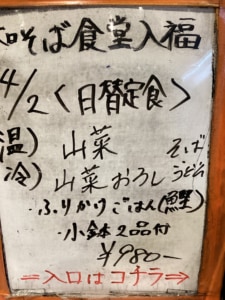 和そば食堂入福
4/2〈日替定食〉
温) 山菜 そば
冷) 山菜おろし うどん
・ふりかけごはん(鰹)
・小鉢2品付
¥980-
⇒入口はコチラ⇒